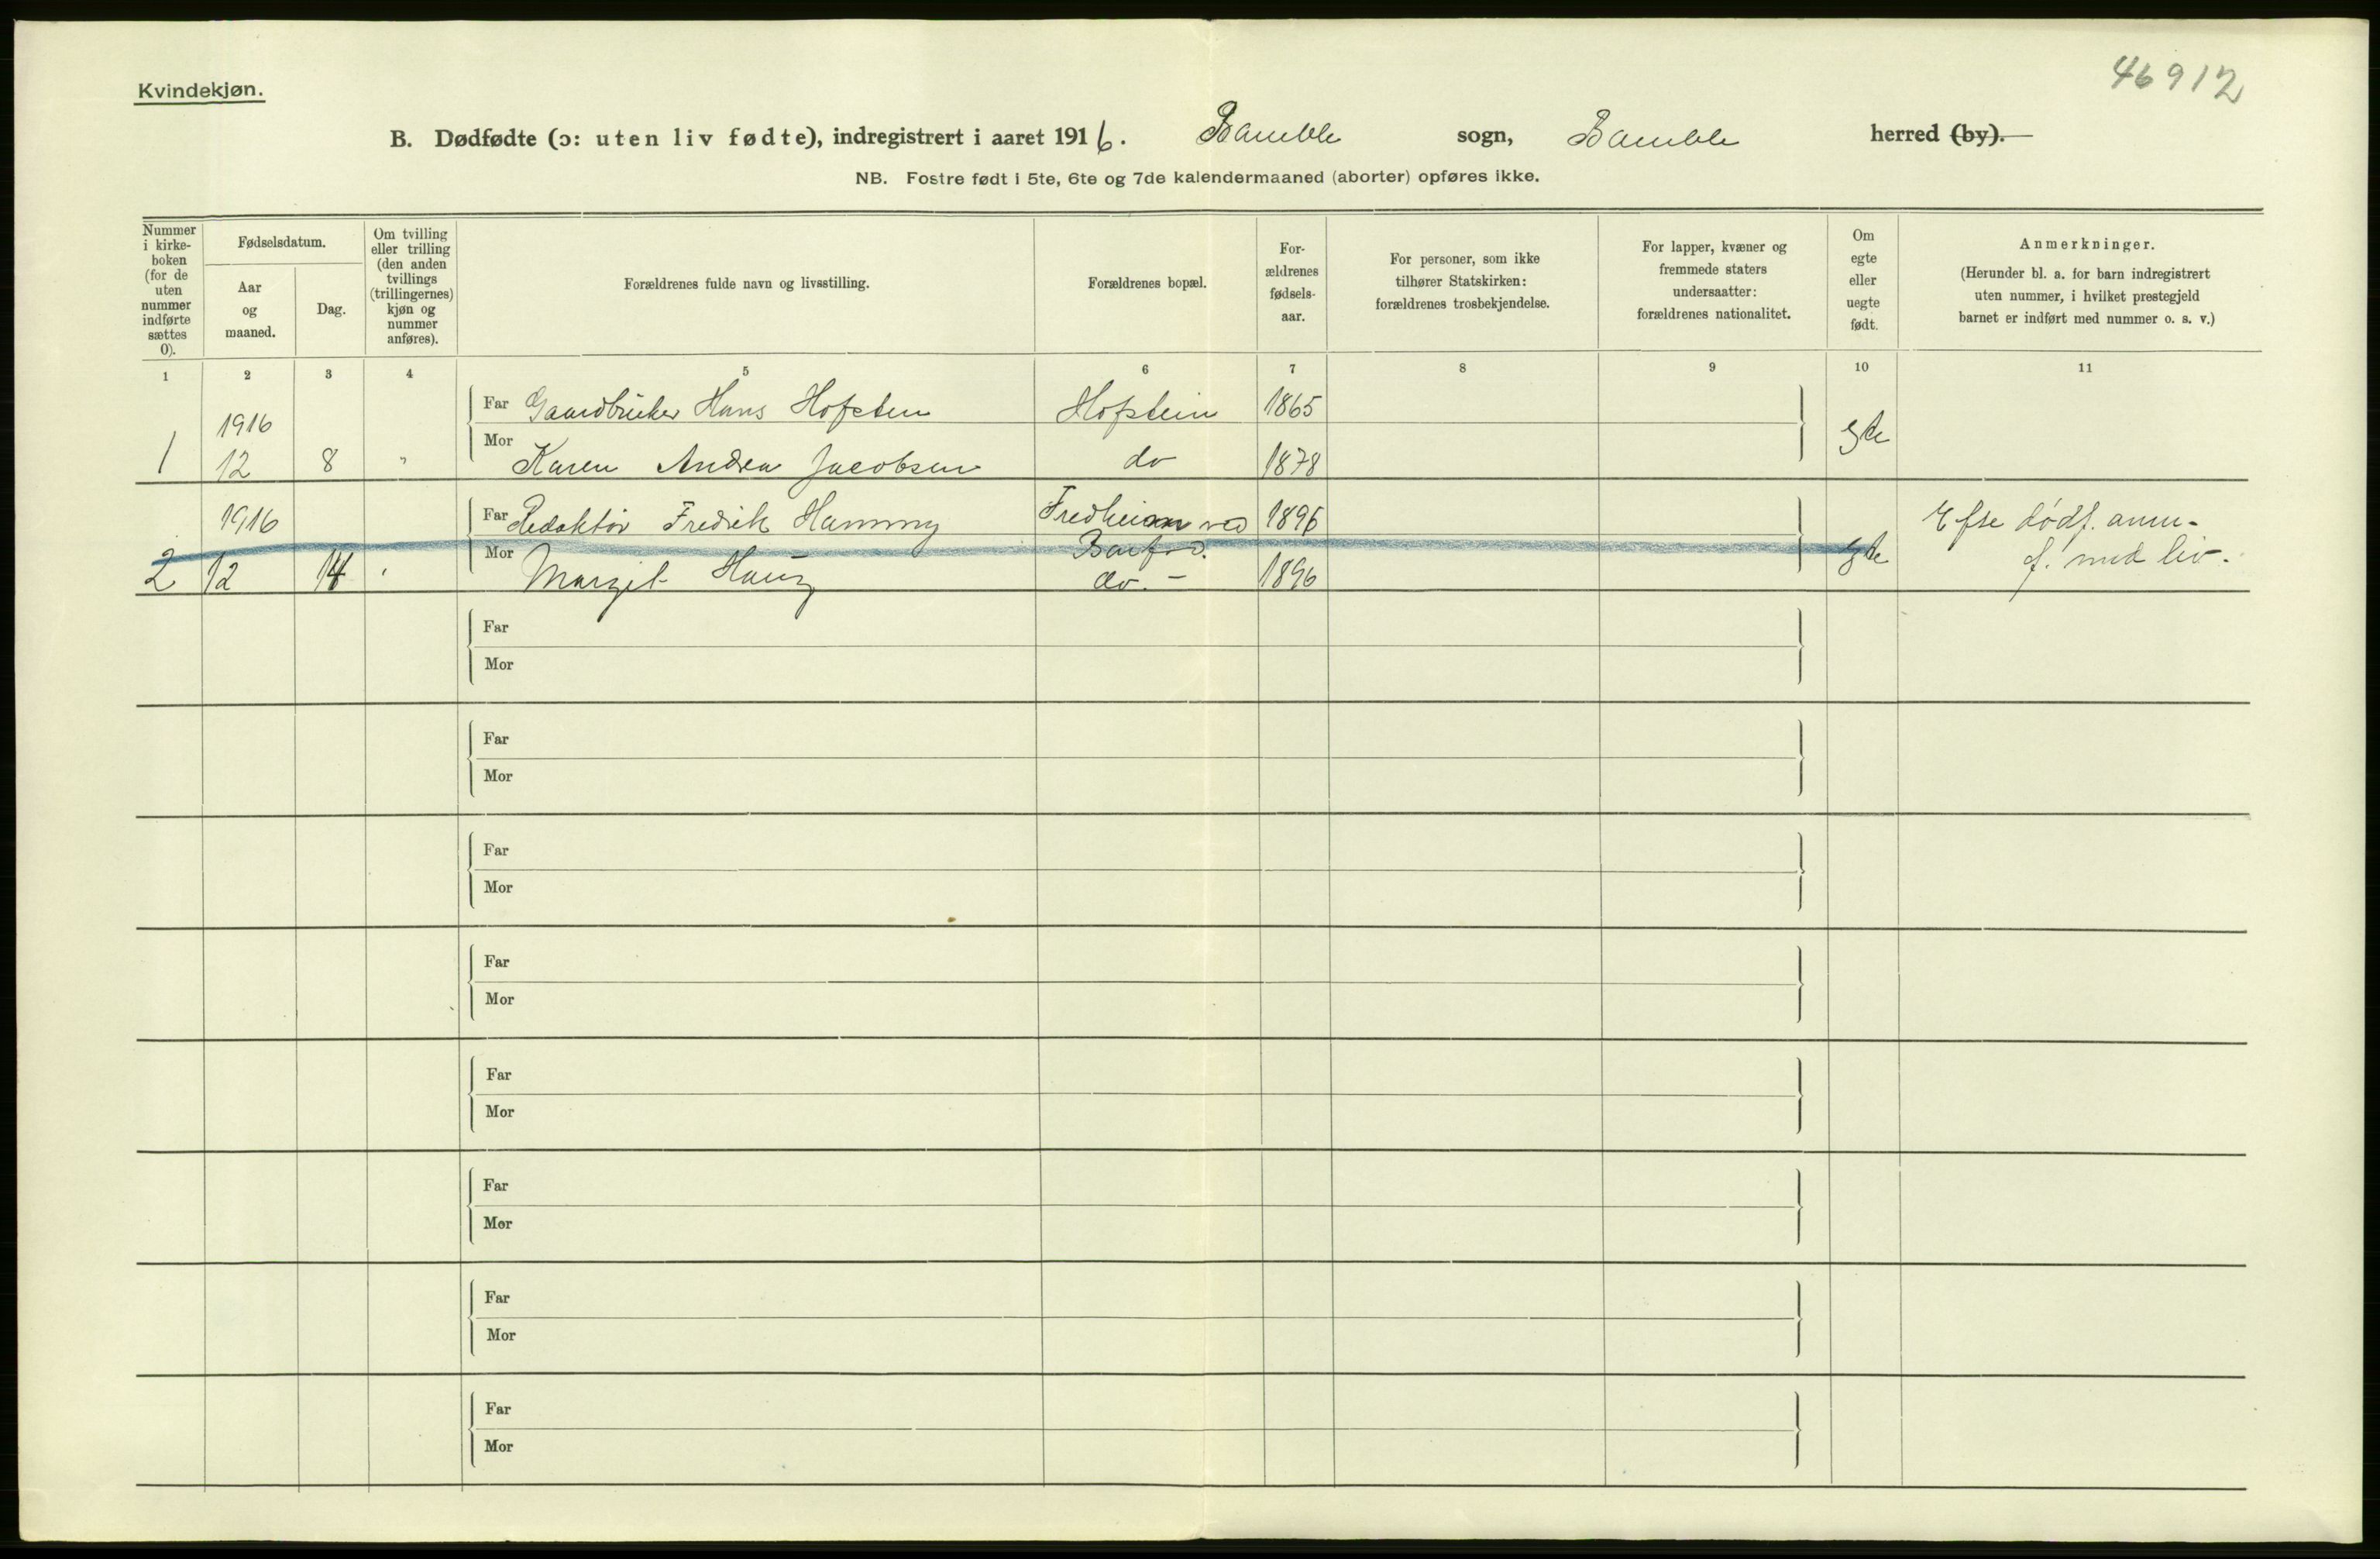 46912
Kvindekjøn.
B. Dødfødte (ɔ: uten liv fødte), indregistrert i aaret 1916. Bamble sogn, Bamble herred (by).
NB. Fostre født i 5te, 6te og 7de kalendermaaned (aborter) opføres ikke.
Nummer
i kirke-
boken
(for de
uten
nummer
indførte
sættes
0).
Fødselsdatum.
Aar
og
maaned.
Dag.
Om tvilling
eller trilling
(den anden
tvillings
(trillingernes)
kjøn og
nummer
anføres).
Forældrenes fulde navn og livsstilling.
Forældrenes bopæl.
For-
ældrenes
fødsels-
aar.
For personer, som ikke
tilhører Statskirken:
forældrenes trosbekjendelse.
For lapper, kvæner og
fremmede staters
undersaatter:
forældrenes nationalitet.
Om
egte
eller
uegte
født.
Anmerkninger.
(Herunder bl. a. for barn indregistrert
uten nummer, i hvilket prestegjeld
barnet er indført med nummer o. s. v.)
1 2 3 4 5 6 7 8 9 10 11
1916 Far Gaardbruker Hans Hofsten Hofstein 1865
1 12 8 " Mor Karen Andrea Jacobsen do 1878 egte
1916 Far Redaktör Fredrik Fredheim ved 1896 Efter dödf. anm-
2 12 14 Mor Margit Haug do. - 1896 egte f. med liv.
Far
Mor
Far
Mor
Far
Mor
Far
Mor
Far
Mor
Far
Mor
Far
Mor
Far
Mor